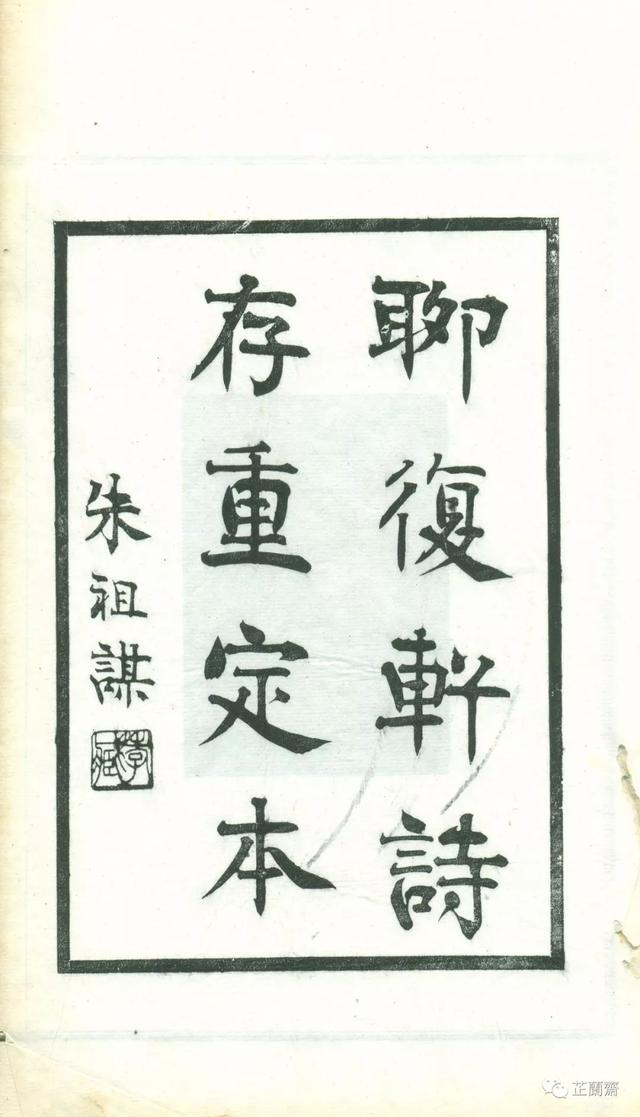 聊復軒詩
存重定本
朱祖謀
芷蘭齋